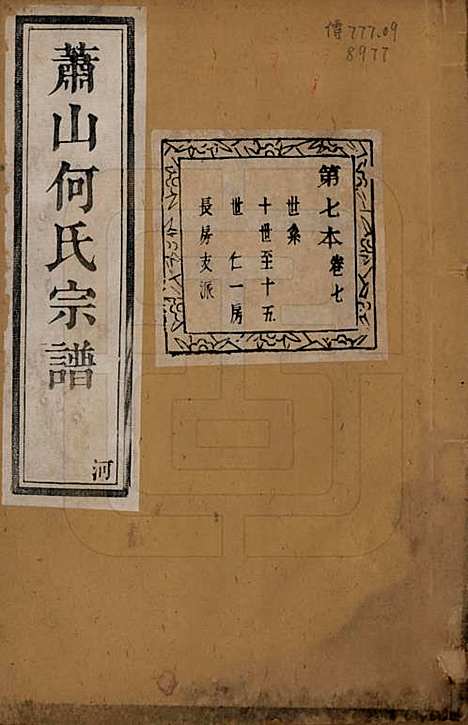 傳777.09
8977
蕭山何氏宗譜
河
第七本 卷七
世系
十世至十五
世 仁一房
長房支派